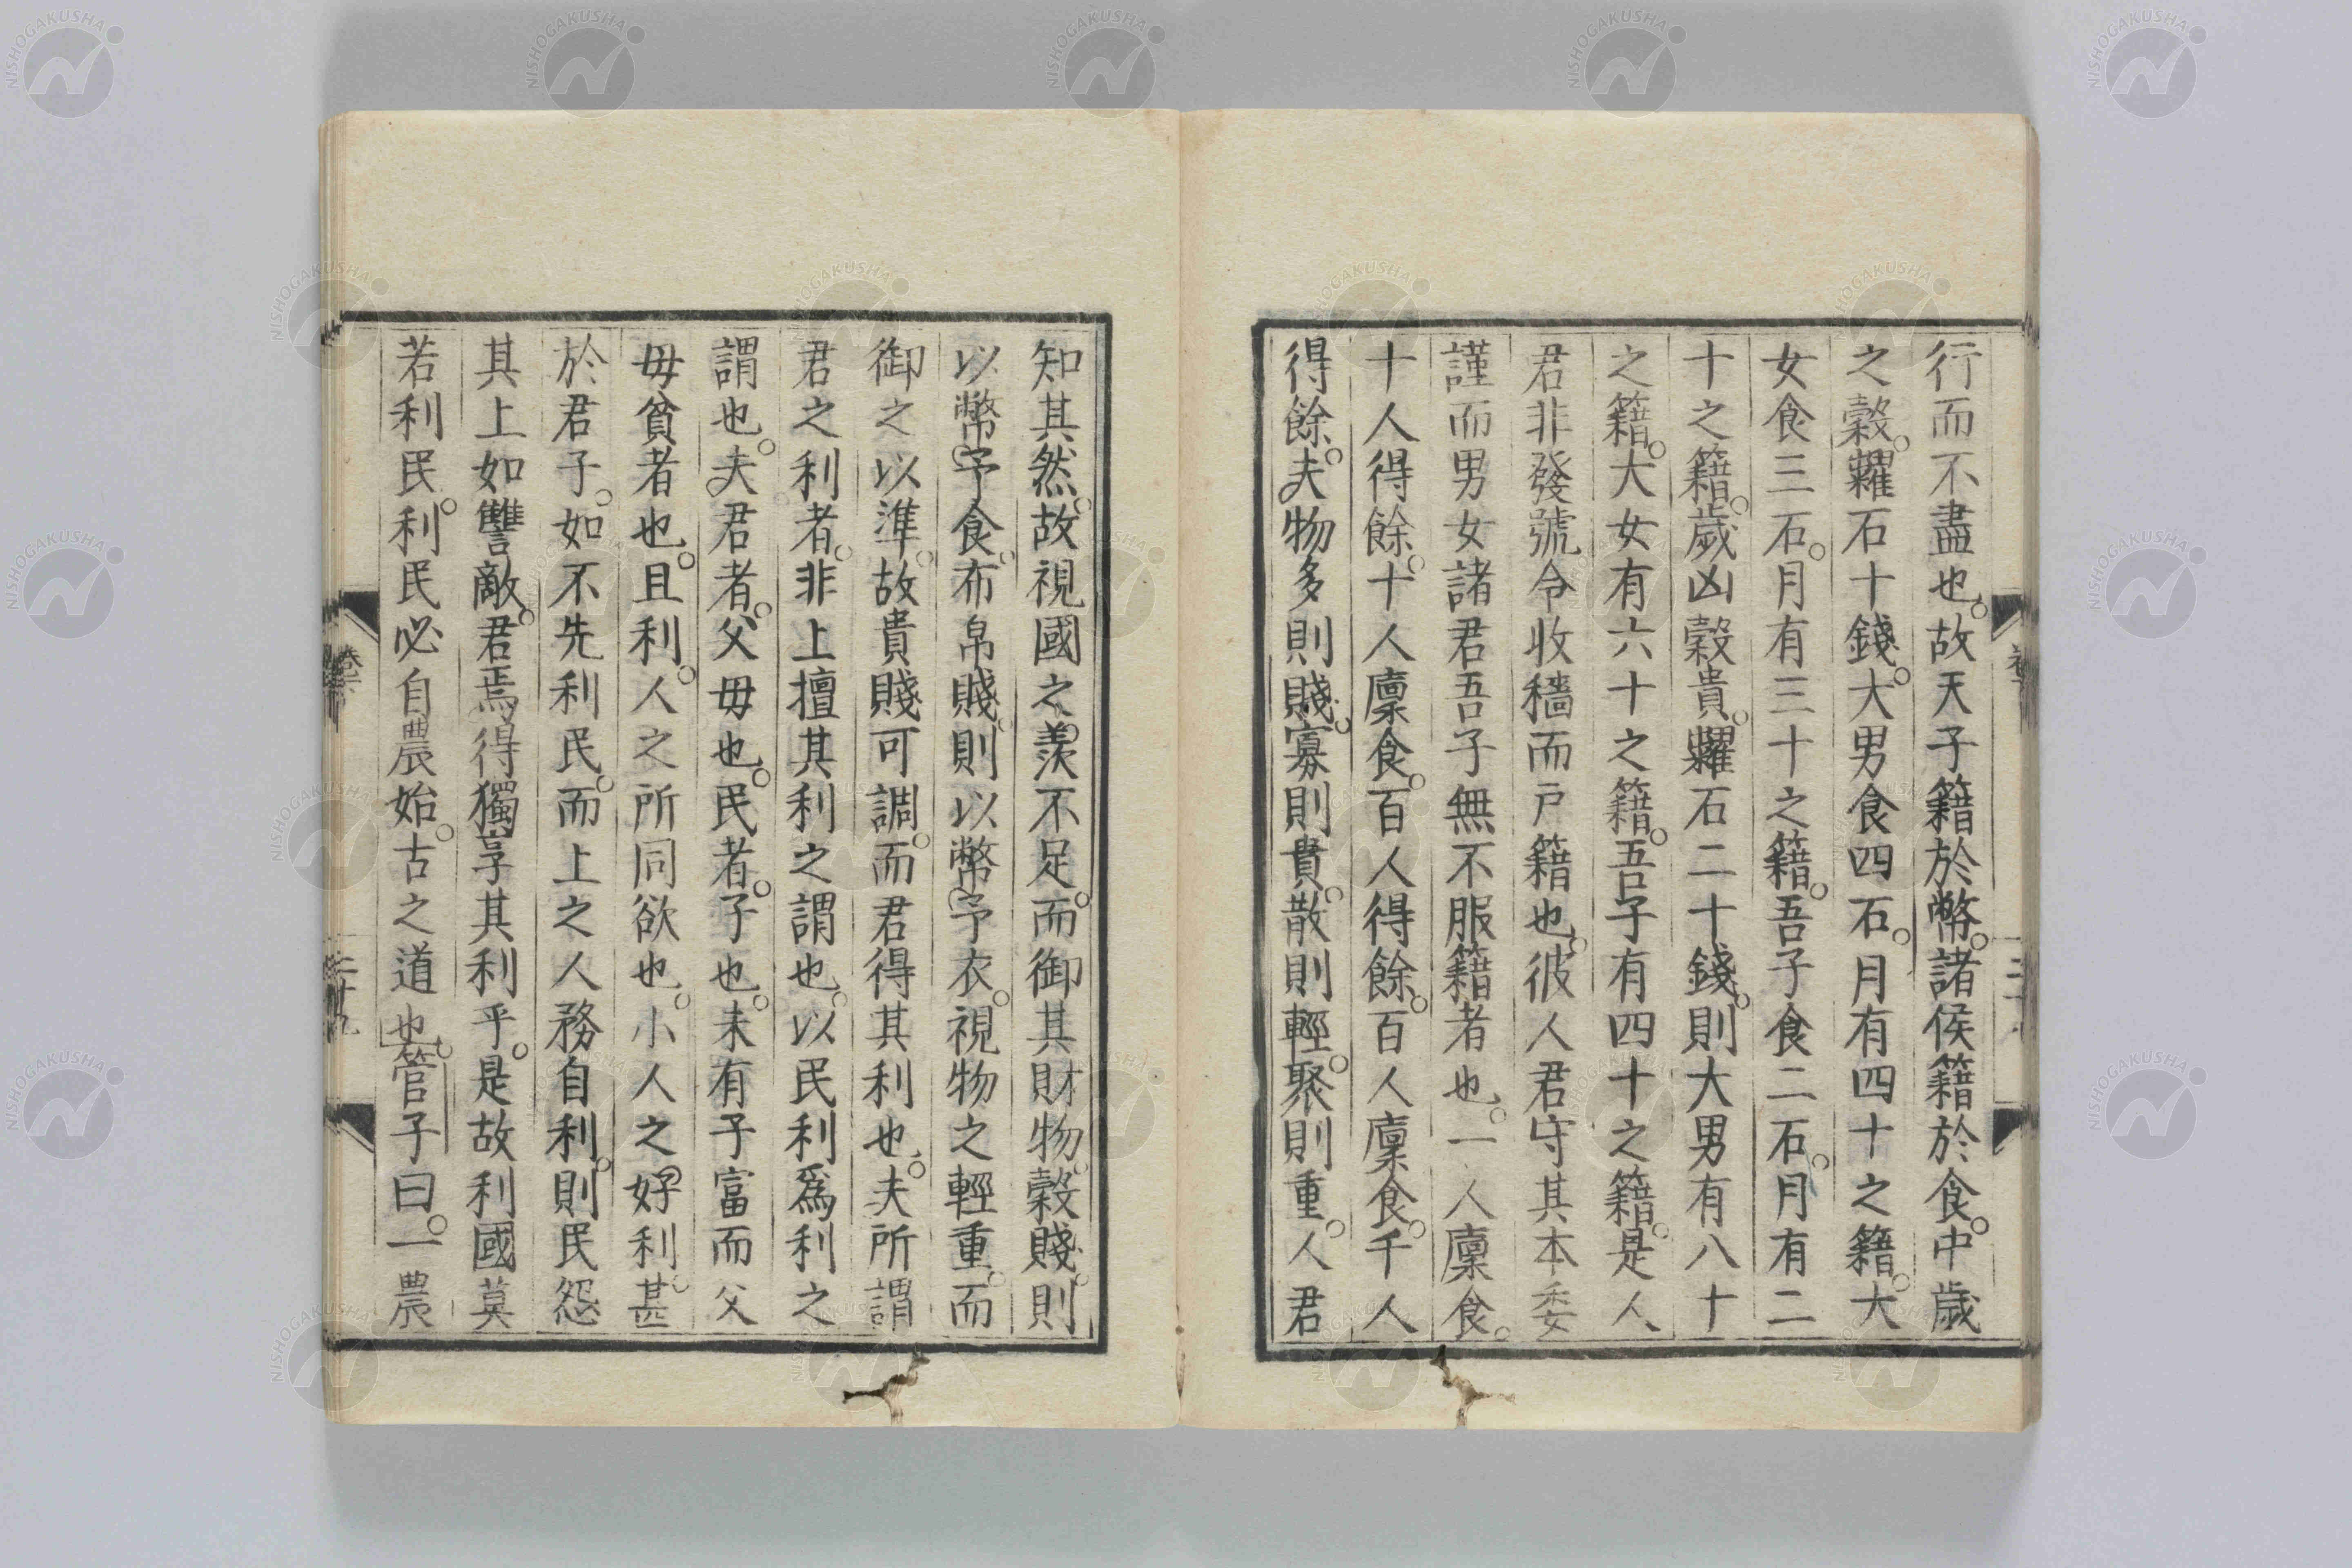 行而不盡也。故天子籍於幣。諸侯籍於食。中歲
之穀。糶石十錢。大男食四石。月有四十之籍。大
女食三石。月有三十之籍。吾子食二石。月有二
十之籍。歲凶穀貴。糶石二十錢。則大男有八十
之籍。大女有六十之籍。吾子有四十之籍。是人
君非發號令收穡而戶籍也。彼人君守其本委
謹而男女諸君吾子無不服籍者也。一人廩食。
十人得餘。十人廩食。百人得餘。百人廩食。千人
得餘。夫物多則賤。寡則貴。散則輕。聚則重。人君
知其然。故視國之羨不足。而御其財物。穀賤。則
以幣予食。布帛賤。則以幣予衣。視物之輕重。而
御之以準。故貴賤可調。而君得其利也。夫所謂
君之利者。非上擅其利之謂也。以民利爲利之
謂也。夫君者。父毋也。民者。子也。未有子富而父
毋貧者也。且利。人之所同欲也。小人之好利甚
於君子。如不先利民。而上之人務自利。則民怨
其上如讐敵。君焉得獨享其利乎。是故利國莫
若利民。利民必自農始。古之道也。管子曰。一農
二十九
NISHOGAKUSHA